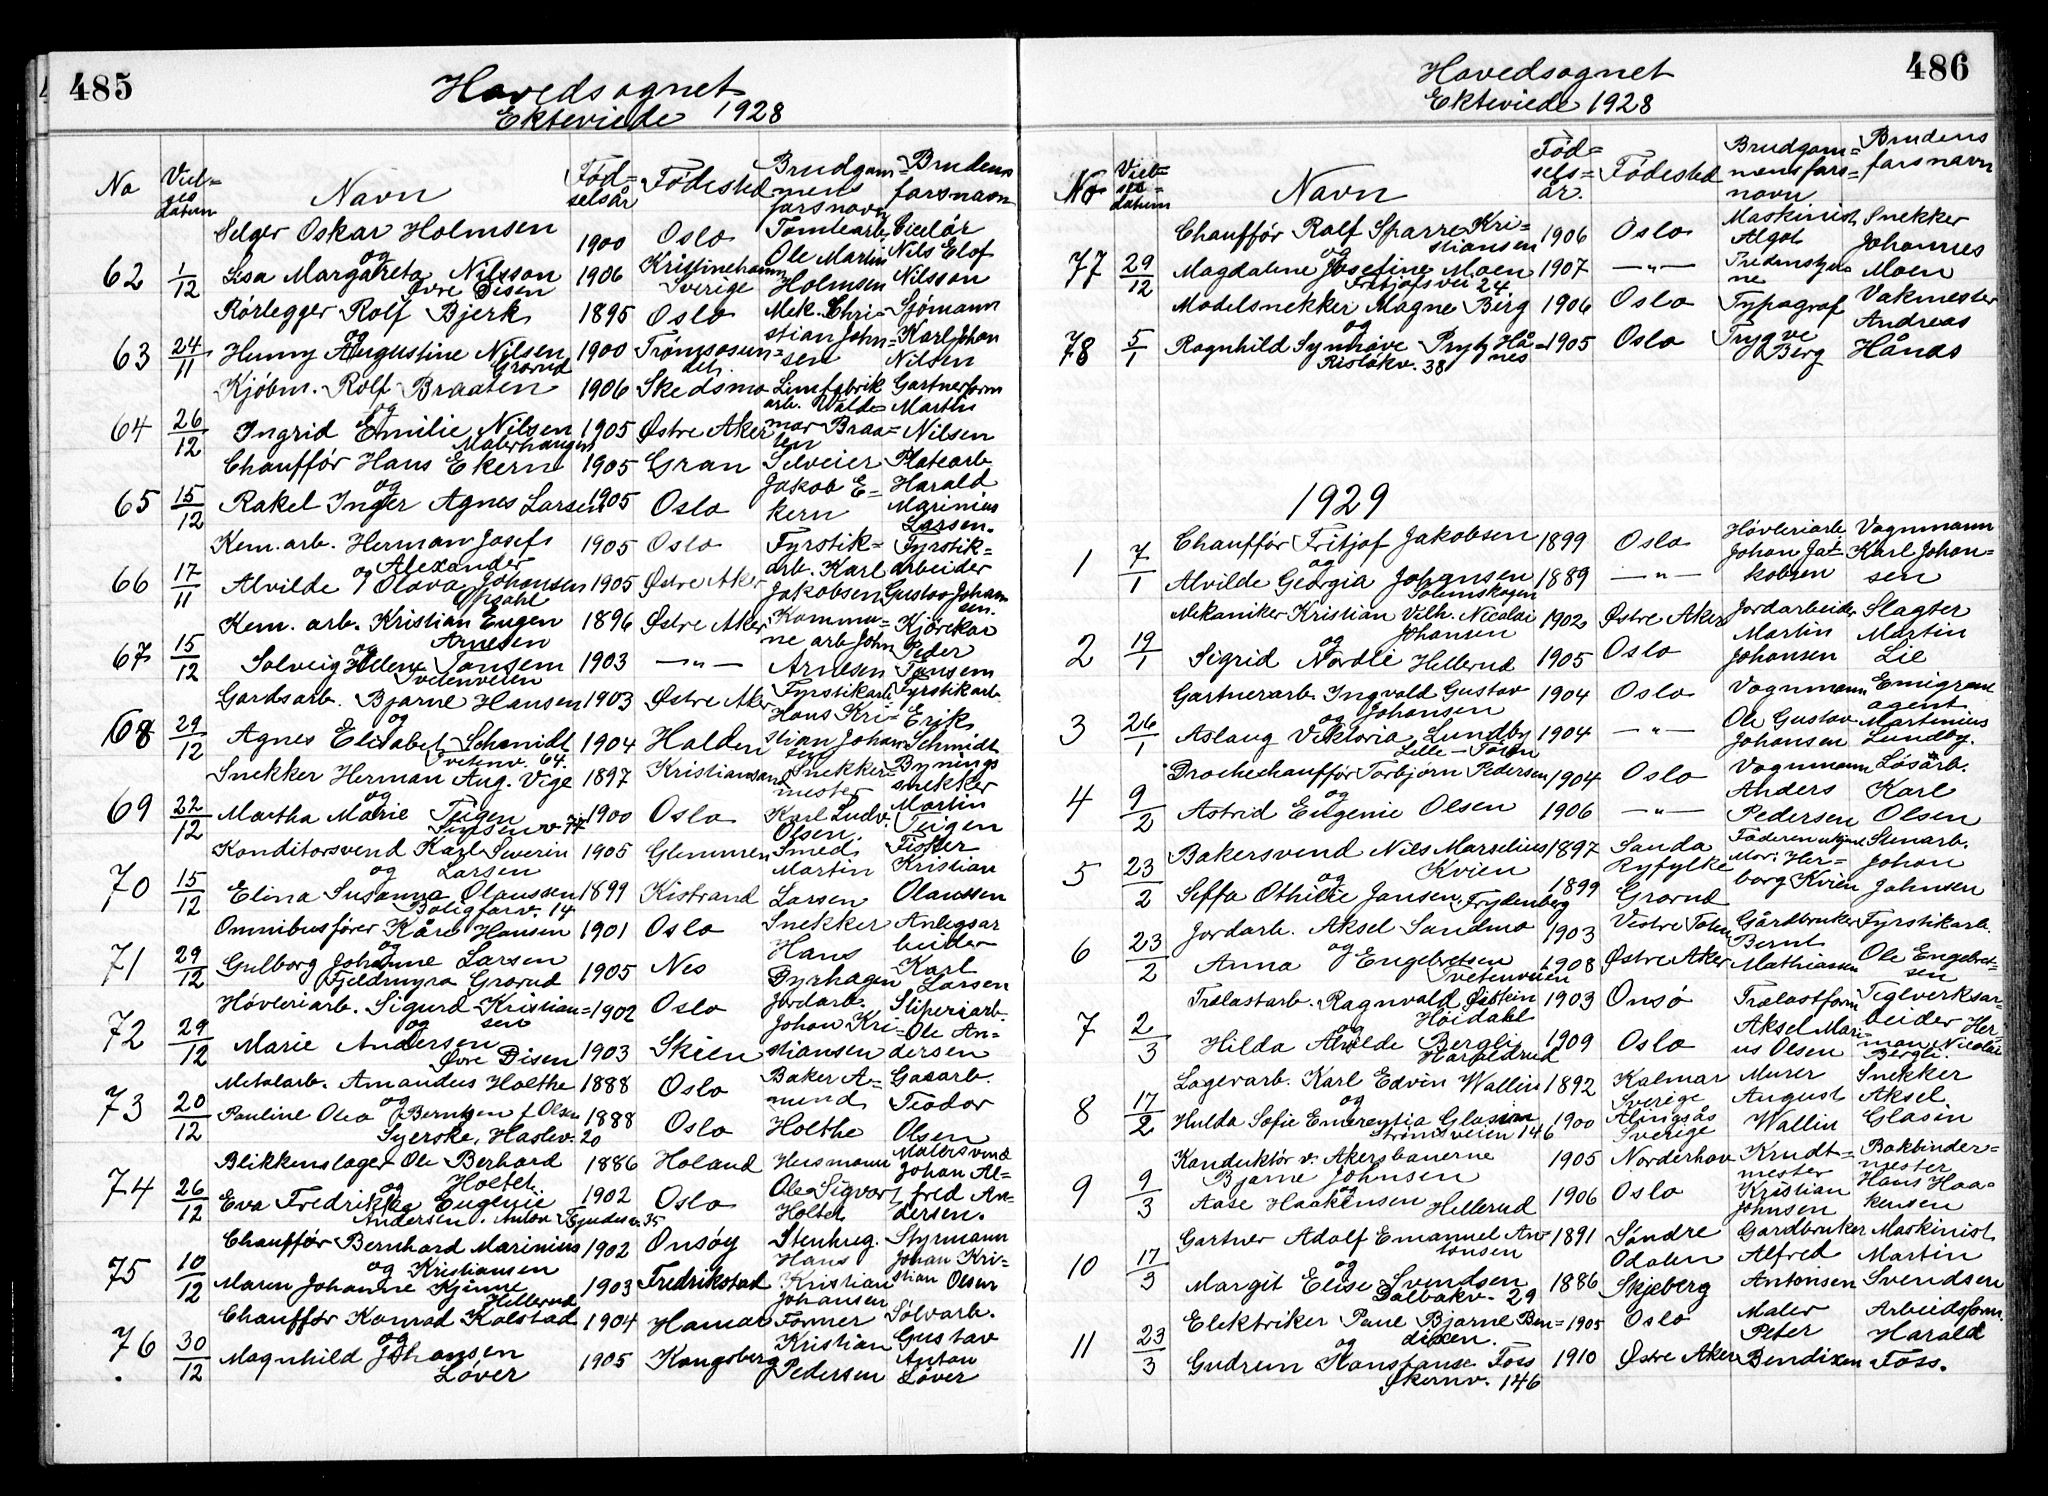 485
Hovedsognet
Ekteviede 1928
No
Viel=
ses
datum
Navn
Fød=
selsår
Fødested
Brudgom=
mens
farsnavn
Brudens
farsnavn
Selger Oskar Holmsen 1900 Oslo Tomtearb. Ciselør
og Ole Martin Nils Elof
62 1/12 Lisa Margareta Nilsson 1906 Kristinehamn Sverige Holmsen Nilsson
Øvre Disen
Rørlegger Rolf Bjerk 1895 Oslo Mek. Chri= Sjømann
og stian John= Karl Johan
63 24/11 Henny Augustine Nilsen 1900 Tromsøsun= det sen Nilsen
Grorud
Kjøbm. Rolf Braaten 1906 Skedsmo Limfabrik Gartnerform
og arb. Walde= Martin
64 26/12 Ingrid Emilie Nilsen 1905 Østre Aker mar Braa= ten Nilsen
Malerhaugen
Chauffør Hans Ekern 1905 Gran Selveier Platearb.
og Jakob E= Harald
65 15/12 Rakel Inger Agnes Larsen 1905 Oslo kern Marinius
Larsen.
Kem. arb. Herman Josef 1905 Oslo Fyrstik= Fyrstik=
Alexander arb. Karl arbeider
66 17/11 Alvilde og Olava Johansen 1905 Østre Aker Jakobsen Gustav Johan
Opsahl sen.
Kem. arb. Kristian Eugen 1896 Østre Aker Kommu= Kjørekar
Arnesen ne arb John Peder
67 15/12 Solveig Helene Tansem 1903 —"— Arnesen Tansem
Tvetenveien
Gardsarb. Bjarne Hansen 1903 Østre Aker Fyrstikarb. Fyrstikarb.
og Hans Kri= Erik
68 29/12 Agnes Elisabet Schmidt 1904 Halden stian Johan Schmidt
Tvetenv. 64. sen
Snekker Herman Aug. Vige 1897 Kristiansand Snekker= Bynings
og mester snekker
69 22/12 Martha Marie Teigen 1900 Oslo Karl Ludv. Martin
Olsen. Teigen
Konditorsvend Karl Severin 1905 Glemmen Smed Fisker
og Larsen Martin Kristian
70 15/12 Elina Susanna Olaussen 1899 Kistrand Larsen Olaussen
Boligfarv. 14
Omnibusfører Kåre Hansen 1901 Oslo Snekker Anlegsar
og Hans beider
71 29/12 Gulborg Johanne Larsen 1905 Nes Byrhagen Karl
Fjeldmyra Grorud Larsen
Høvleriarb. Sigurd Kristian= 1902 Oslo Jordarb. Sliperiarb.
og sen Johan Kri= Ole An=
72 29/12 Marie Andersen 1903 Skien stiansen dersen
Øvre Disen
Metalarb. Amandus Holthe 1888 Oslo Baker A= Gasarb.
og mund Teodor
73 20/12 Pauline Olea Berntzen f Olsen 1888 Oslo Holthe Olsen
Syerske, Haslev. 20
Blikkenslager Ole Berhard 1886 Holand Husmann Malersvend
og Holtet Ole Sigvor Johan Al=
74 26/12 Eva Fredrikke Eugenie 1902 Oslo Holtet fred An=
Andersen. dersen.
Chauffør Bernhard Marinius 1902 Onsøy Stenhug. Styrmann
og Kristiansen Hans Johan Kri=
75 10/12 Maren Johanne Kjønne 1903 Fredrikstad Kristian stian Olsen
Hellerud Johansen
Chauffør Konrad Kolstad 1904 Hamar Former Sølvarb.
og Kristian Gustav
76 30/12 Magnhild Johansen 1905 Kongsberg Pedersen Anton
Løver Løver
486
Hovedsognet
Ekteviede 1928
No
Viel=
ses=
datum
Navn
Fød=
sels=
år.
Fødested
Brudgom=
mens fars=
navn
Brudens
farsnavn
Chauffør Rolf Sparre Kri= 1906 Oslo Maskinist Snekker
og stiansen Algot Johannes
77 29/12 Magdalene Josefine Moen 1907 —"— Moen
Fritjofsvei 24
Modelsnekker Magne Berg 1906 Oslo Typograf Vakmester
og Andreas
78 5/1 Ragnhild Synnøve Pryt Hå= 1905 Oslo Trygve Hånes
nes Berg
Risløkv. 38
1929
Chauffør Fritjof Jakobsen 1899 Oslo Høvleriarb. Vognmann
og Johan Ja= Karl Johan=
1 7/1 Alvilde Georgia Johansen 1889 —"— kobsen sen
Solemskogen
Mekaniker Kristian Vilh. Nicolai 1902 Østre Aker Jordarbeider Slagter
og Johansen Martin Martin
2 19/1 Sigrid Nordli Hellerud 1905 Oslo Johansen Lie
Gartnerarb. Ingvald Gustav 1904 Oslo Vognmann Emigrant
og Johansen agent
3 26/1 Aslaug Viktoria Lundby 1904 —"— Ole Gustav Martinius
Lille-Tøien Johansen Lundby.
Droschechauffør Torbjørn Pedersen 1904 Oslo Vognmann Løsarb.
og Anders Karl
4 9/2 Astrid Eugenie Olsen 1906 —"— Pedersen Olsen
Bakersvend Nils Marselius 1897 Sanda Faderen ukjent Stenarb.
og Kvien Ryfylke Mor: Her= Johan
5 23/2 Seffa Othilie Jansen Frydenberg 1899 Grorud borg Kvien Johnsen
Jordarb. Aksel Sandmo 1903 Vestre Toten Gårdbruker Fyrstikarb.
og Bernt
6 23/2 Anna Engebretsen 1908 Østre Aker Mathiassen Ole Engebret=
Tvetenveien sen
Trælastarb. Ragnvald Øistein 1903 Onsø Trælastform Teglverksar=
og Høidahl Aksel Mari= beider Her=
7 2/3 Hilda Alvilde Bergli 1909 Oslo us Olsen man Nicolai
Haraldrud Bergli.
Lagerarb. Karl Edvin Wallin 1892 Kalmar Murer Snekker
og Sverige August Aksel
8 17/2 Hulda Sofie Emerentia Glasin 1900 Alingsås Wallin Glasin
Strømsveien 146 Sverige
Konduktør v. Akersbanerne 1905 Norderhov Krudt= Bokbinder=
Bjarne Johnsen mester mester
og Kristian Hans Haa=
9 9/3 Aase Haakensen Hellerud 1906 Oslo Johnsen kensen
Gartner Adolf Emanuel An= 1891 Søndre Gardbruker Maskinist
tonsen Odalen Alfred Martin
10 17/3 Margit Elise Svendsen 1886 Skjeberg Antonsen Svendsen
Dalbakv. 29
Elektriker Paul Bjarne Ben= 1905 Oslo Maler Arbeidsform.
og dixen. Peter Harald
11 23/3 Gudrun Konstanse Foss 1910 Østre Aker Bendixen Foss.
Økernv. 146